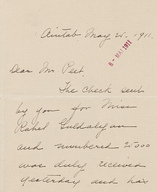 Aintab May 25. 1911.
Dear Mr Peet
The check sent
by you for Miss
Rahel
and numbered 2.500
was duly received
yesterday and has